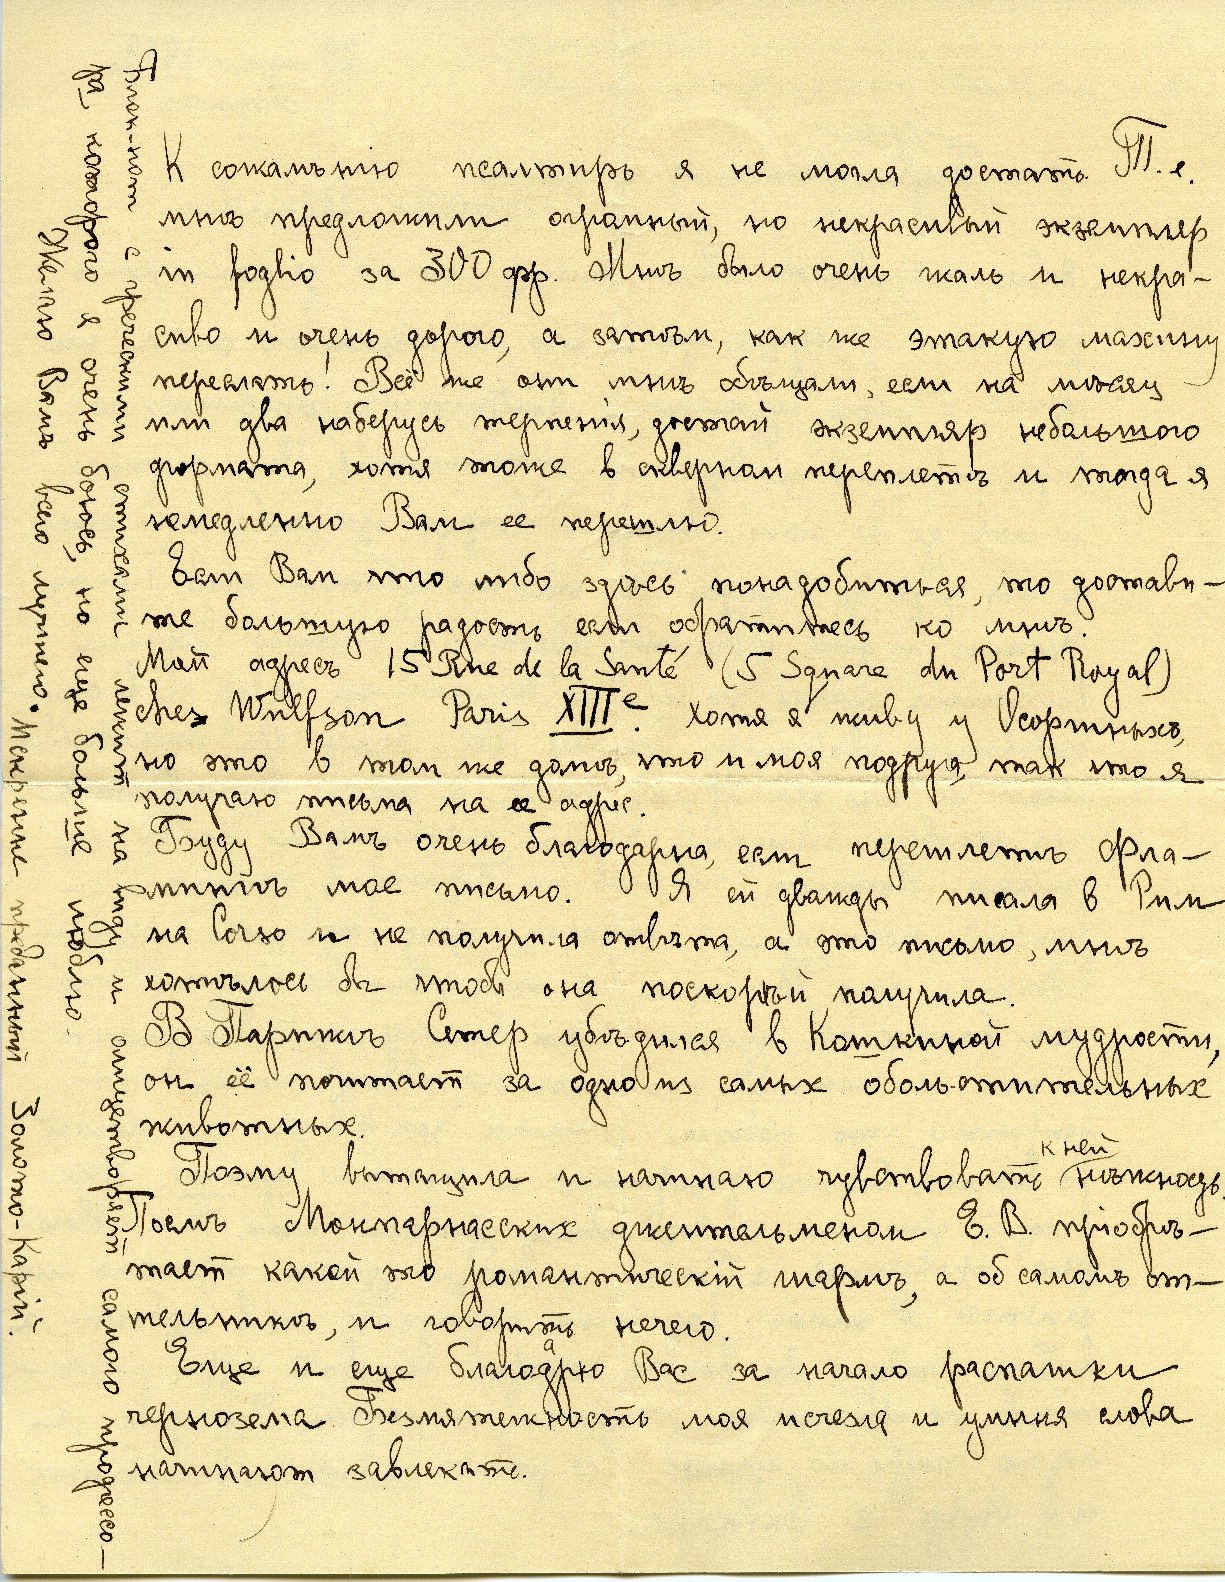 К сожалѣнію псалтирь я не могла достать. Т.е.
мнѣ предложили огромный, но некрасивый экземпляр
in foglio за 300 фр. Мнѣ было очень жаль и некра-
сиво и очень дорого, а затѣм, как же этакую махину
переслать! Всё же они мнѣ обѣщали, если на мѣсяц
или два наберусь терпенія, достать экземпляр небольшого
формата, хотя тоже в скверном переплетѣ и тогда я
немедленно Вам ее перешлю.
Если Вам что либо здѣсь понадобиться, то достави-
те большую радость если обратитесь ко мнѣ.
Мой адресъ 15 Rue de la Santé (5 Square du Port Royal)
chez Wulfson Paris XIIIe. Хотя я живу у Осоргиныхъ,
но это в том же домѣ, что и моя подруга, так что я
получаю письма на ее адрес.
Буду Вамъ очень благодарна, если перешлетѣ Фла-
миніѣ мое письмо. Я ей дважды писала в Рим
на Corso и не получила отвѣта, а это письмо, мнѣ
хотѣлось бы чтобы она поскорѣй получила.
В Парижѣ Сетер убѣдился в Кошкиной мудрости,
он её почитает за одно из самых обольстительных
животных.
Поэму вытащила и начинаю чувствовать к ней нѣжность.
Послѣ Монпарнасских джентельменом Е. В. пріобрѣ-
тает какой то романтическій шармъ, а об самомъ от-
шельникѣ, и говорить нечего.
Еще и еще благодарю Вас за начало распашки
чернозема. Безмятежность моя исчезла и умныя слова
начинают завлекать.
Блок-нот с греческими стихами лежит на виду и олицетворяет самого профессо-
ра которого я очень боюсь, но еще больше люблю.
Желаю Вамъ всего лучшего. Искренне преданный Золото-Карій.